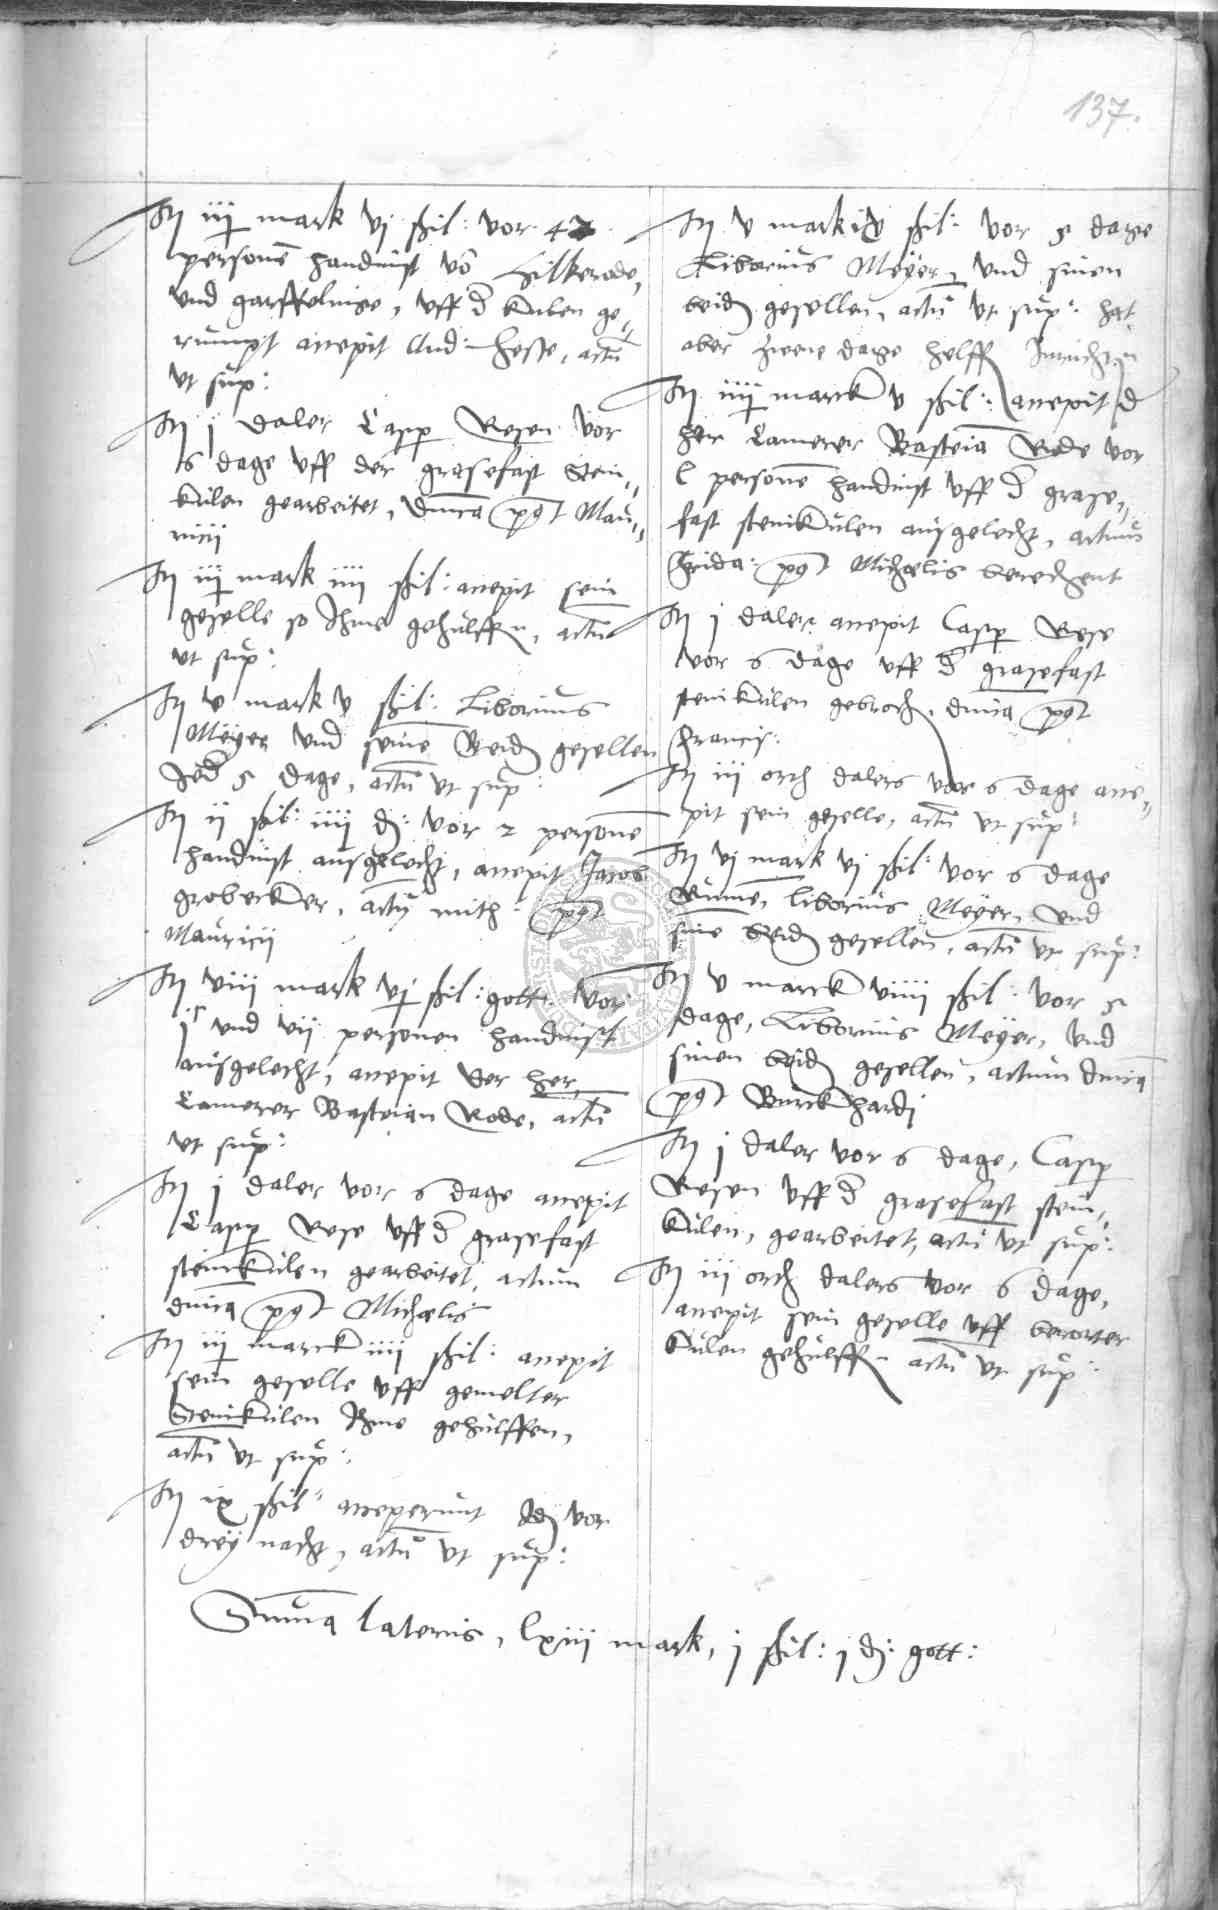 137.
It iij mark vj ßil: vor 42
personē handinst vō Hilkerode,
und garffelnise, uff d kulen ge-
rumpt accepit And: Hesse, actū
ut sup:
It j daler Casp Resen vor
6 dage uff der grasefast stein,,
kulen gearbeitet, dmca post Mau,,
ricii
It iij mark iiij ßil: accepit sein
geselle so Ihme gehulffn, actū
ut sup:
It v mark v ßil: Liborius
Meyer und seine Beidn gesellen
Jed 5 dage, actū ut sup:
It ij ßil: iiij d: vor 2 personē
handinst ausgelecht, accepit Jacob
grobecker, actū mitch: post
Mauricii
It viij mark vj ßil: gott: vor
jc und vij personen handinst
ausgelecht, accepit der her,
Camerer Basteian Rode, actū
ut sup:
It j daler vor 6 dage accepit
Casp Rese uff d grasefast
steinkulen gearbeitet, actum
dmca post Michaelis
It iij marck iiij ßil: accepit
sein geselle uff gemelter
Steinkulen Ihme gehulffen,
actū ut sup:
It ix ßil: acceperunt vor
drey nacht, actū ut sup:
It v mark ix ßil: vor 5 dage
Liborius Meyer, und sinen
beidn gesellen, actū ut sup: hat
aber zwene dage helffn
It iiij marck v ßil: accepit d
her Camerer Basteiā Rode vor
l personē handinst uff d grase,,
fast steinkulen ausgelecht, actum
frida: post Michaelis berechent
It j daler accepit Casp Rese
vor 6 dage uff d grasefast
steinkulen gebrochn, dmca post
Francis:
It iij orth dalers vor 6 dage acce,,
pit sein geselle, actū ut sup:
It vj mark vj ßil: vor 6 dage
Rumē, Liborius Meyer, und
sine beidn gesellen, actū ut sup:
It v marck viiij ßil: vor 5
dage, Liborius Meyer, und
sinen beidn gesellen, actum dmca
post Burckhardi
It j daler vor 6 dage, Casp
Resen uff d grasefast stein,
kulen, gearbeitet, actū ut sup:
It iij orth dalers vor 6 dage,
accepit sein geselle uff berorter
kulen gehulffn actū ut sup:
Summa lateris, lxiij mark, j ßil: j d: gott: